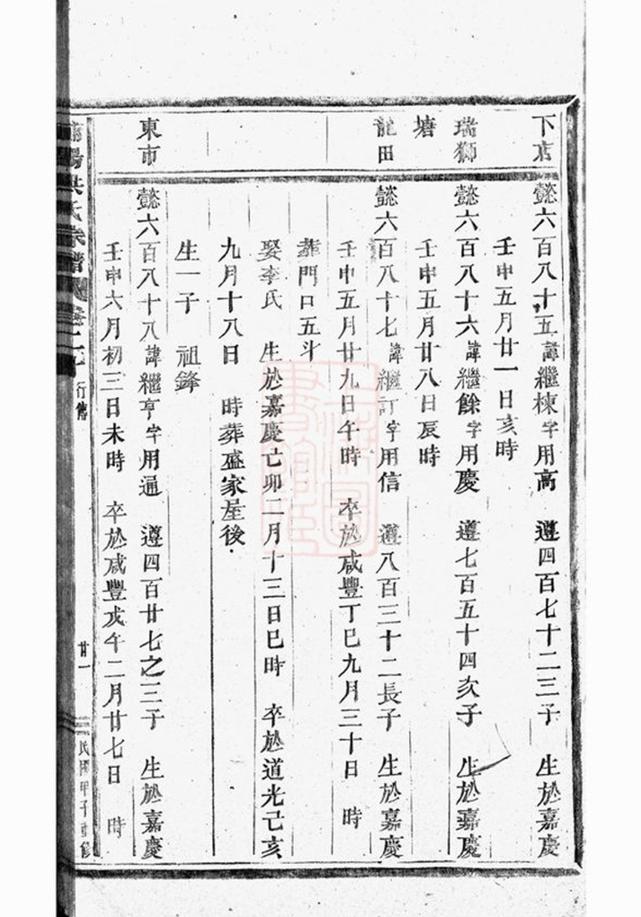 下店
懿六百八十五諱繼棟字用高 遵四百七十二三子 生於嘉慶
壬申五月廿一日亥時
瑞獅
塘
懿六百八十六諱繼餘字用慶 遵七百五十四次子 生於嘉慶
壬申五月廿八日辰時
龍田
懿六百八十七諱繼訂字用信 遵八百三十二長子 生於嘉慶
壬申五月廿九日午時 卒於咸豐丁巳九月三十日 時
葬門口五斗
娶李氏 生於嘉慶己卯二月十三日巳時 卒於道光己亥
九月十八日 時葬盛家屋後
生一子 祖鋒
東市
懿六百八十八諱繼亨字用通 遵四百廿七之三子 生於嘉慶
壬申六月初三日未時 卒於咸豐戊午二月廿七日 時
陽洪氏宗譜 卷二 行傳 廿一 民國甲子重修